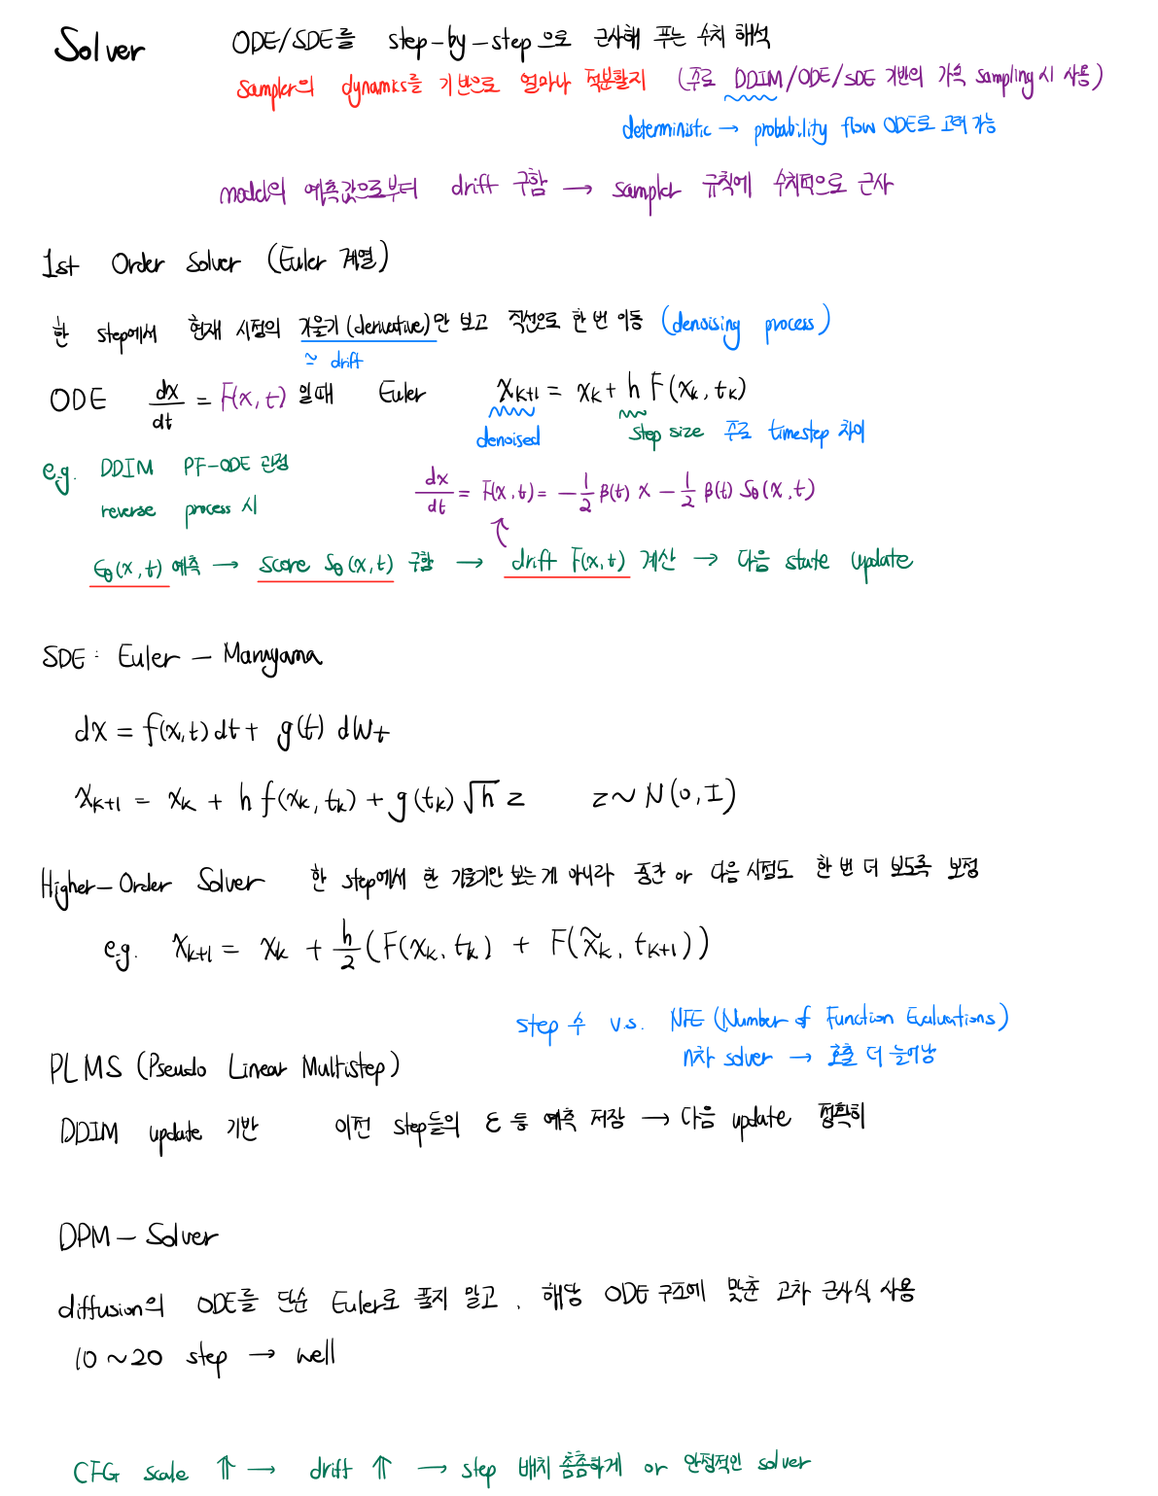 Solver ODE/SDE를 step-by-step으로 근사해 푸는 수치 해석
Sampler의 dynamics를 기반으로 얼마나 적분할지 (주로 DDIM/ODE/SDE 기반의 가속 sampling시 사용)
deterministic → probability flow ODE로 고려 가능
model의 예측값으로부터 drift 구함 → sampler 규칙에 수치적으로 근사
1st Order Solver (Euler 계열)
한 step에서 현재 시점의 기울기(derivative)만 보고 직선으로 한 번 이동 (denoising process)
≃ drift
ODE dx/dt = F(x, t) 일때 Euler x_{k+1} = x_k + h F(x_k, t_k)
denoised step size 주로 timestep 차이
e.g. DDIM PF-ODE 관점
dx/dt = F(x, t) = -1/2 β(t) x - 1/2 β(t) S_θ(x, t)
reverse process 시
ϵ_θ(x, t) 예측 → score S_θ(x, t) 구함 → drift F(x, t) 계산 → 다음 state update
SDE: Euler – Maruyama
dx = f(x, t) dt + g(t) dW_t
x_{k+1} = x_k + h f(x_k, t_k) + g(t_k) √h z z ~ N(0, I)
Higher-Order Solver 한 step에서 한 기울기만 보는 게 아니라 중간 or 다음 시점도 한 번 더 보도록 보정
e.g. x_{k+1} = x_k + h/2 (F(x_k, t_k) + F(x̃_k, t_{k+1}))
step 수 v.s. NFE (Number of Function Evaluations)
n차 solver → 호출 더 늘어남
PLMS (Pseudo Linear Multistep)
DDIM update 기반 이전 step들의 ε 등 예측 저장 → 다음 update 정확히
DPM – Solver
diffusion의 ODE를 단순 Euler로 풀지 말고, 해당 ODE 구조에 맞춘 고차 근사식 사용
10 ~ 20 step → well
CFG scale ⇑ → drift ⇑ → step 배치 촘촘하게 or 안정적인 solver